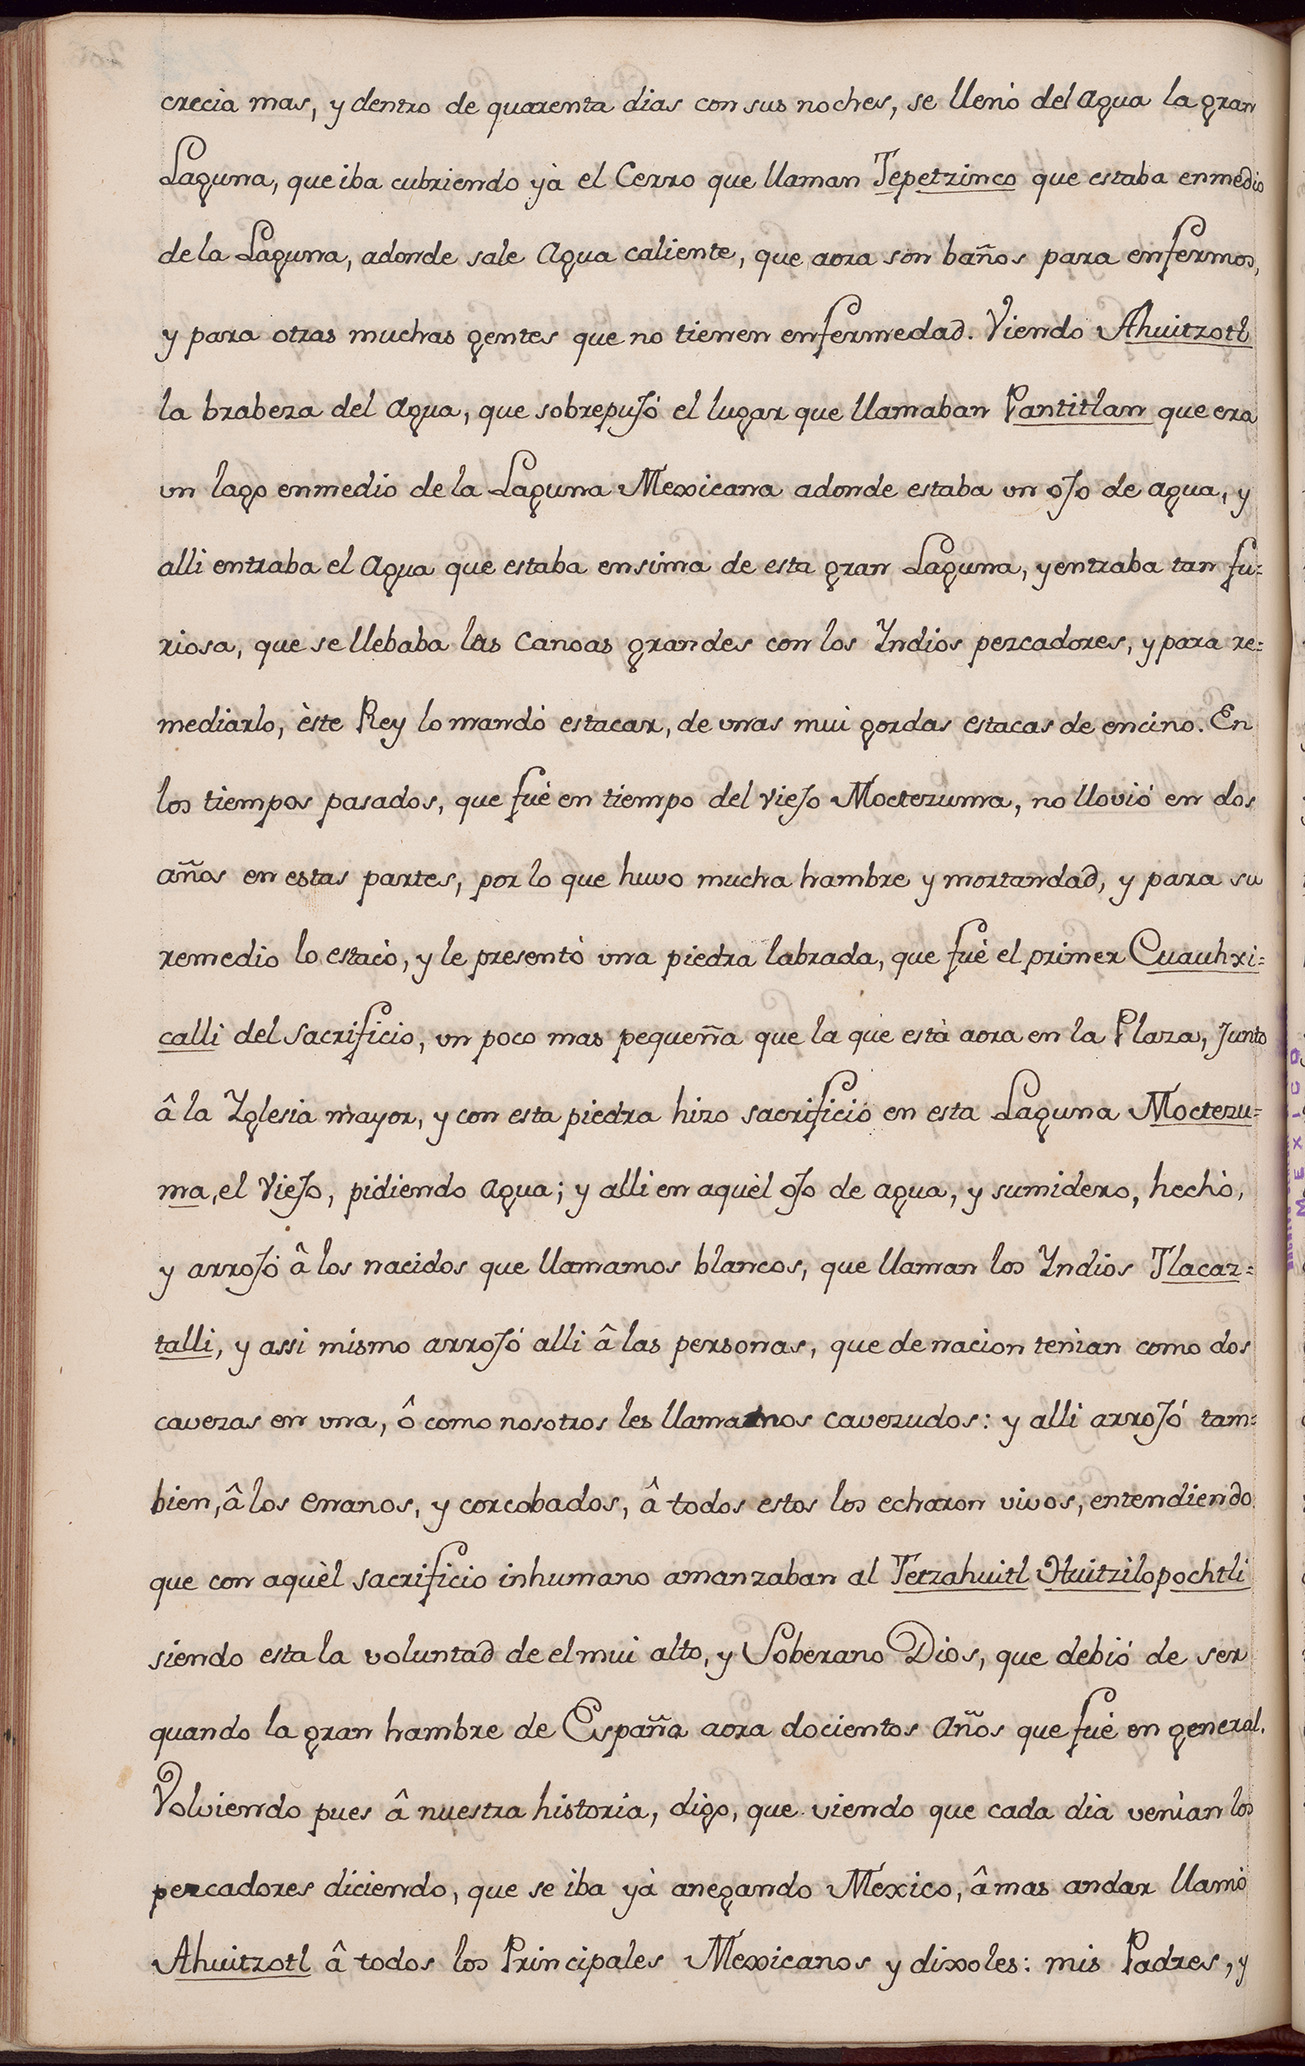 crecia mas, y dentro de quarenta dias con sus noches, se llenó del Agua la gran
Laguna, que iba cubriendo yà el Cerro que llaman Tepetzinco que estaba enmedio
de la Laguna, adonde sale Agua caliente, que aora son baños para enfermos,
y para otras muchas gentes que no tienen enfermedad. Viendo Ahuitzotl
la brabeza del Agua, que sobrepuJó el lugar que llamaban Pantitlan que era
un lago enmedio de la Laguna Mexicana adonde estaba un oJo de agua, y
alli entraba el Agua que estaba ensima de esta gran Laguna, y entraba tan fu=
riosa, que se llebaba las Canoas grandes con los Yndios pezcadores, y para re=
mediarlo, èste Rey lo mandó estacar, de unas mui gordas estacas de encino. En
los tiempos pasados, que fuè en tiempo del vieJo Moctezuma, no llovió en dos
años en estas partes, por lo que huvo mucha hambre y mortandad, y para su
remedio lo estacò, y le presentò una piedra labrada, que fuè el primer Cuauhxi=
calli del sacrificio, un poco mas pequeña que la que està aora en la Plaza, Junto
â la Yglesia mayor, y con esta piedra hizo sacrificio en esta Laguna Moctezu=
ma, el VieJo, pidiendo Agua; y alli en aquèl oJo de agua, y sumidero, hechò,
y arroJó â los nacidos que llamamos blancos, que llaman los Yndios Tlacaz=
talli, y assi mismo arroJó alli â las personas, que de nacion tenian como dos
cavezas en una, ô como nosotros les llamamos cavezudos: y alli arroJó tam=
bien, â los enanos, y corcobados, â todos estos los echaron vivos, entendiendo
que con aquèl sacrificio inhumano amanzaban al Tetzahuitl Huitzilopochtli
siendo esta la voluntad de el mui alto, y Soberano Dios, que debió de ser
quando la gran hambre de España aora docientos Años que fuè en general.
Volviendo pues â nuestra historia, digo, que viendo que cada dia venian los
pezcadores diciendo, que se iba yà anegando Mexico, â mas andar llamò
Ahuitzotl â todos los Principales Mexicanos y dixoles: mis Padres, y
MEXICO